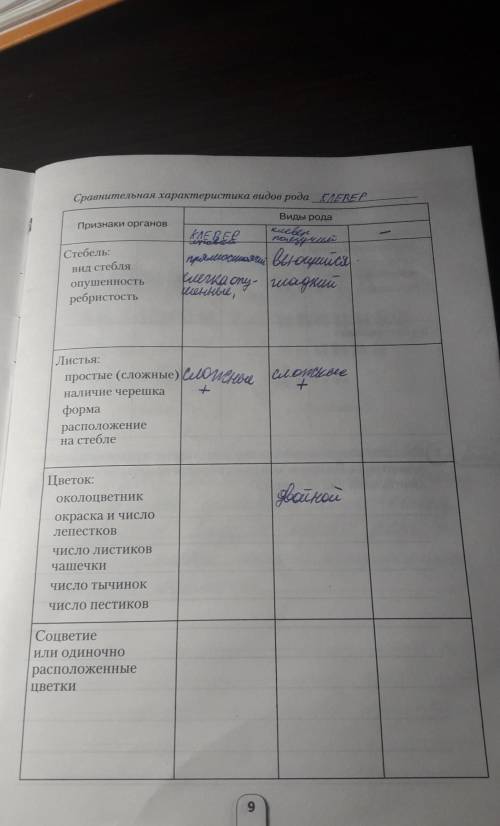 Сравнительная характеристика видов рода КЛЕВЕР
Признаки органов
Виды рода
КЛЕВЕР
луговой
клевер
ползучий
–
Стебель:
вид стебля
опушенность
ребристость
прямостоячий
слегка опу-
шенные,
вьющийся
гладкий
Листья:
простые (сложные)
наличие черешка
форма
расположение
на стебле
сложные
+
сложные
+
Цветок:
околоцветник
окраска и число
лепестков
число листиков
чашечки
число тычинок
число пестиков
двойной
Соцветие
или одиночно
расположенные
цветки
9